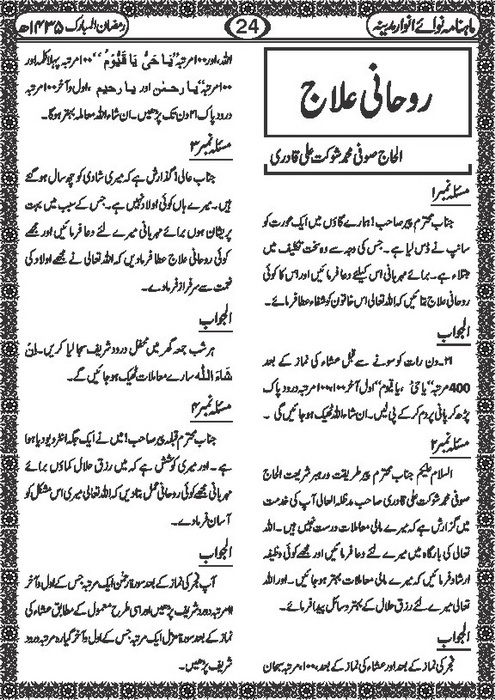 ماہنامہ نوائے انوار مدینہ
24
رمضان المبارک ۱۴۳۵ھ
روحانی علاج
الحاج صوفی محمد شوکت علی قادری
مسئلہ نمبر ۱
جناب محترم پیر صاحب! ہمارے گاؤں میں ایک عورت کو
سانپ نے ڈس لیا ہے۔ جس کی وجہ سے وہ سخت تکلیف میں
مبتلاء ہے۔ برائے مہربانی اس کیلئے دعا فرمائیں اور اس کا کوئی
روحانی علاج بتائیں کہ اللہ تعالی اس خاتون کو شفاء عطا فرمائے۔
الجواب
۲۱۔ دن رات کو سونے سے قبل عشاء کی نماز کے بعد
400 مرتبہ ”یا حیُّ، یا قیوم“ اول آخر ۱۰۰،۱۰۰ مرتبہ درود پاک
پڑھ کر پانی پر دم کر کے پی لیں۔ ان شاء اللہ ٹھیک ہو جائیں گی ۔
مسئلہ نمبر ۲
السلام علیکم جناب محترم پیر طریقت و رہبر شریعت الحاج
صوفی محمد شوکت علی قادری صاحب مدظلہ العالی آپ کی خدمت
میں گزارش ہے کہ میرے مالی معاملات درست نہیں ہیں۔ اللہ
تعالی کی بارگاہ میں میرے لئے دعا فرمائیں اور مجھے کوئی وظیفہ
ارشاد فرمائیں کہ میرے مالی معاملات بہتر ہو جائیں۔ اور اللہ
تعالی میرے لئے رزق حلال کے بہتر وسائل پیدا فرمائے۔
الجواب
فجر کی نماز کے بعد اور عشاء کی نماز کے بعد، ۱۰۰ مرتبہ سبحان
اللہ، اور ۱۰۰ مرتبہ ”یَا حَیُّ یَا قَیُّوْمُ“ ۱۰۰ مرتبہ پہلا کلمہ اور
۱۰۰ مرتبہ ”یا رحمٰن اور یا رحیم، اول و آخر ۱۰۰ مرتبہ
درود پاک ۲۱ دن تک پڑھیں۔ ان شاء اللہ معاملہ بہتر ہو گا۔
مسئلہ نمبر ۳
جناب عالی! گذارش ہے کہ میری شادی کو چھ سال ہو گئے
ہیں۔ میرے ہاں کوئی اولاد نہیں ہے۔ جس کے سبب میں بہت
پریشان ہوں برائے مہربانی میرے لئے دعا فرمائیں اور مجھے
کوئی روحانی علاج عطا فرمادیں کہ اللہ تعالی نے مجھے اولاد کی
نعمت سے سرفراز فرمادے۔
الجواب
ہر شب جمعہ گھر میں محفل درود شریف سجا لیا کریں۔ اِنْ
شَاءَ اللہ سارے معاملات ٹھیک ہو جائیں گے۔
مسئلہ نمبر ۴
جناب محترم قبلہ پیر صاحب! میں نے ایک جگہ انٹرویو دیا ہوا
ہے۔ اور میری کوشش ہے کہ میں رزق حلال کماؤں برائے
مہربانی مجھے کوئی روحانی عمل بتادیں کہ اللہ تعالی میری اس مشکل کو
آسان فرمادے۔
الجواب
آپ فجر کی نماز کے بعد سورۃ رحمٰن ایک مرتبہ جس کے اول و آخر
۱۱ مرتبہ درود شریف پڑھیں اور اسی طرح معمول کے مطابق عشاء کی
نماز کے بعد سورۃ مزمل ایک مرتبہ جس کے اول و آخر گیارہ مرتبہ درود
شریف پڑھیں۔